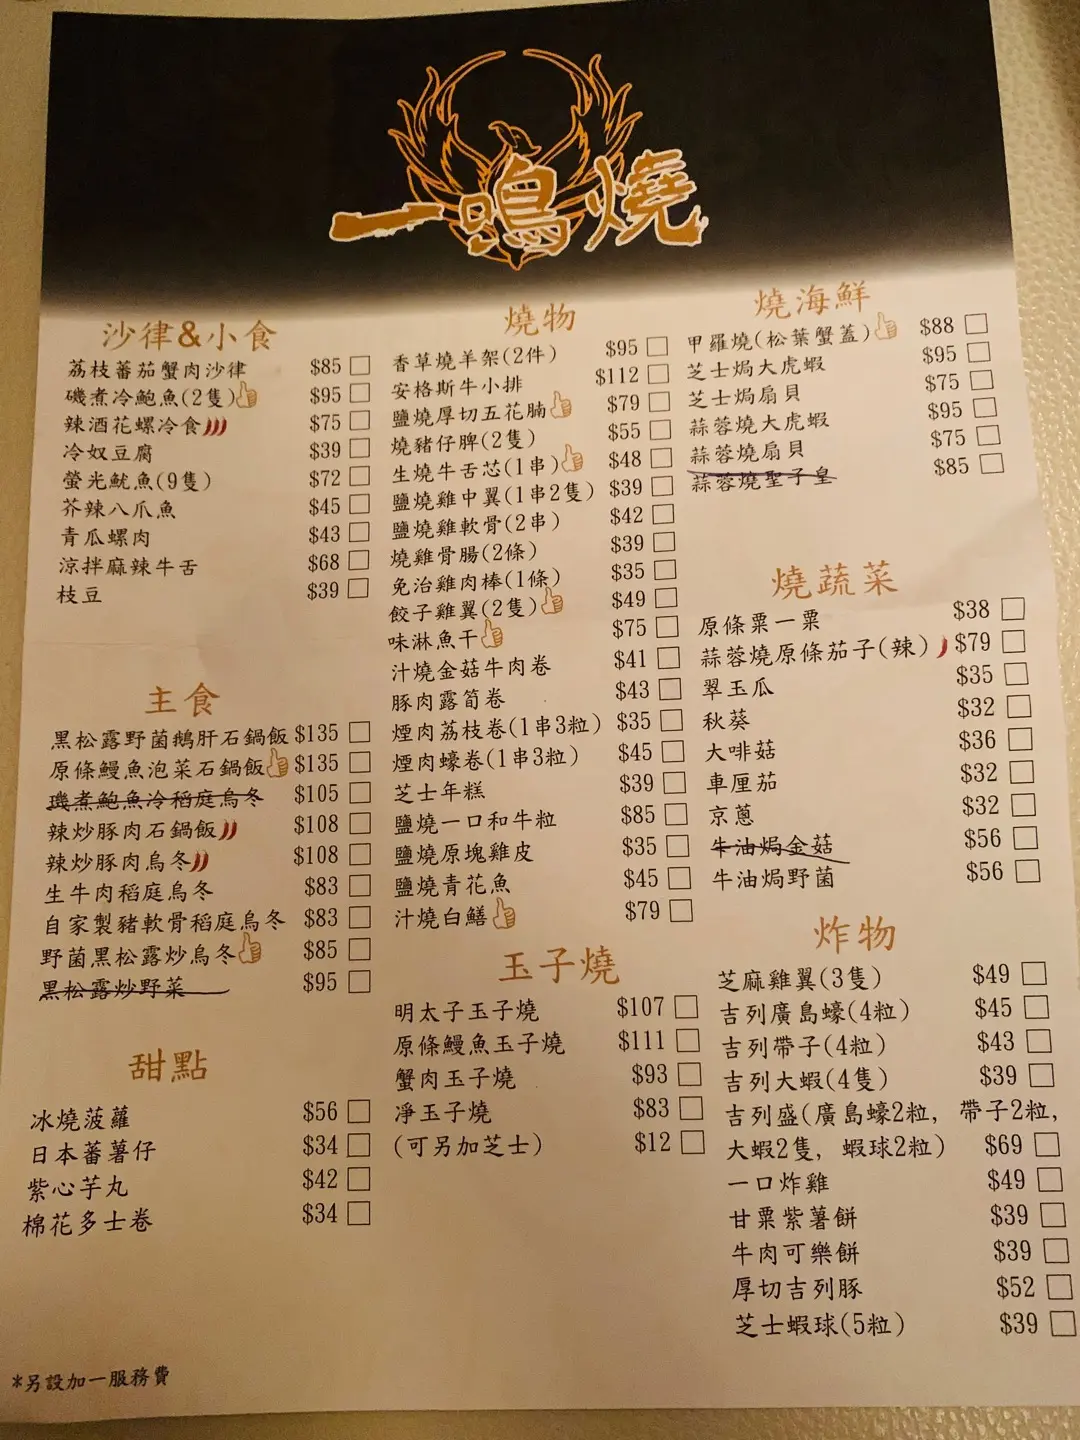 一鳴燒
沙律&小食
荔枝蕃茄蟹肉沙律 $85
磯煮冷鮑魚(2隻) $95
辣酒花螺冷食 $75
冷奴豆腐 $39
螢光魷魚(9隻) $72
芥辣八爪魚 $45
青瓜螺肉 $43
涼拌麻辣牛舌 $68
枝豆 $39
主食
黑松露野菌鵝肝石鍋飯 $135
原條鰻魚泡菜石鍋飯 $135
磯煮鮑魚冷稻庭烏冬 $105
辣炒豚肉石鍋飯 $108
辣炒豚肉烏冬 $108
生牛肉稻庭烏冬 $83
自家製豬軟骨稻庭烏冬 $83
野菌黑松露炒烏冬 $85
黑松露炒野菜 $95
甜點
冰燒菠蘿 $56
日本蕃薯仔 $34
紫心芋丸 $42
棉花多士卷 $34
*另設加一服務費
燒物
香草燒羊架(2件) $95
安格斯牛小排 $112
鹽燒厚切五花腩 $79
燒豬仔脾(2隻) $55
生燒牛舌芯(1串) $48
鹽燒雞中翼(1串2隻) $39
鹽燒雞軟骨(2串) $42
燒雞骨腸(2條) $39
免治雞肉棒(1條) $35
餃子雞翼(2隻) $49
味淋魚干 $75
汁燒金菇牛肉卷 $41
豚肉露荀卷 $43
煙肉荔枝卷(1串3粒) $35
煙肉蠔卷(1串3粒) $45
芝士年糕 $39
鹽燒一口和牛粒 $85
鹽燒原塊雞皮 $35
鹽燒青花魚 $45
汁燒白鱔 $79
玉子燒
明太子玉子燒 $107
原條鰻魚玉子燒 $111
蟹肉玉子燒 $93
凈玉子燒 $83
(可另加芝士) $12
燒海鮮
甲羅燒(松葉蟹蓋) $88
芝士焗大虎蝦 $95
芝士焗扇貝 $75
蒜蓉燒大虎蝦 $95
蒜蓉燒扇貝 $75
蒜蓉燒聖子皇 $85
燒蔬菜
原條粟一粟 $38
蒜蓉燒原條茄子(辣) $79
翠玉瓜 $35
秋葵 $32
大啡菇 $36
車厘茄 $32
京蔥 $32
牛油焗金菇 $56
牛油焗野菌 $56
炸物
芝麻雞翼(3隻) $49
吉列廣島蠔(4粒) $45
吉列帶子(4粒) $43
吉列大蝦(4隻) $39
吉列盛(廣島蠔2粒, 帶子2粒,
大蝦2隻, 蝦球2粒) $69
一口炸雞 $49
甘粟紫薯餅 $39
牛肉可樂餅 $39
厚切吉列豚 $52
芝士蝦球(5粒) $39